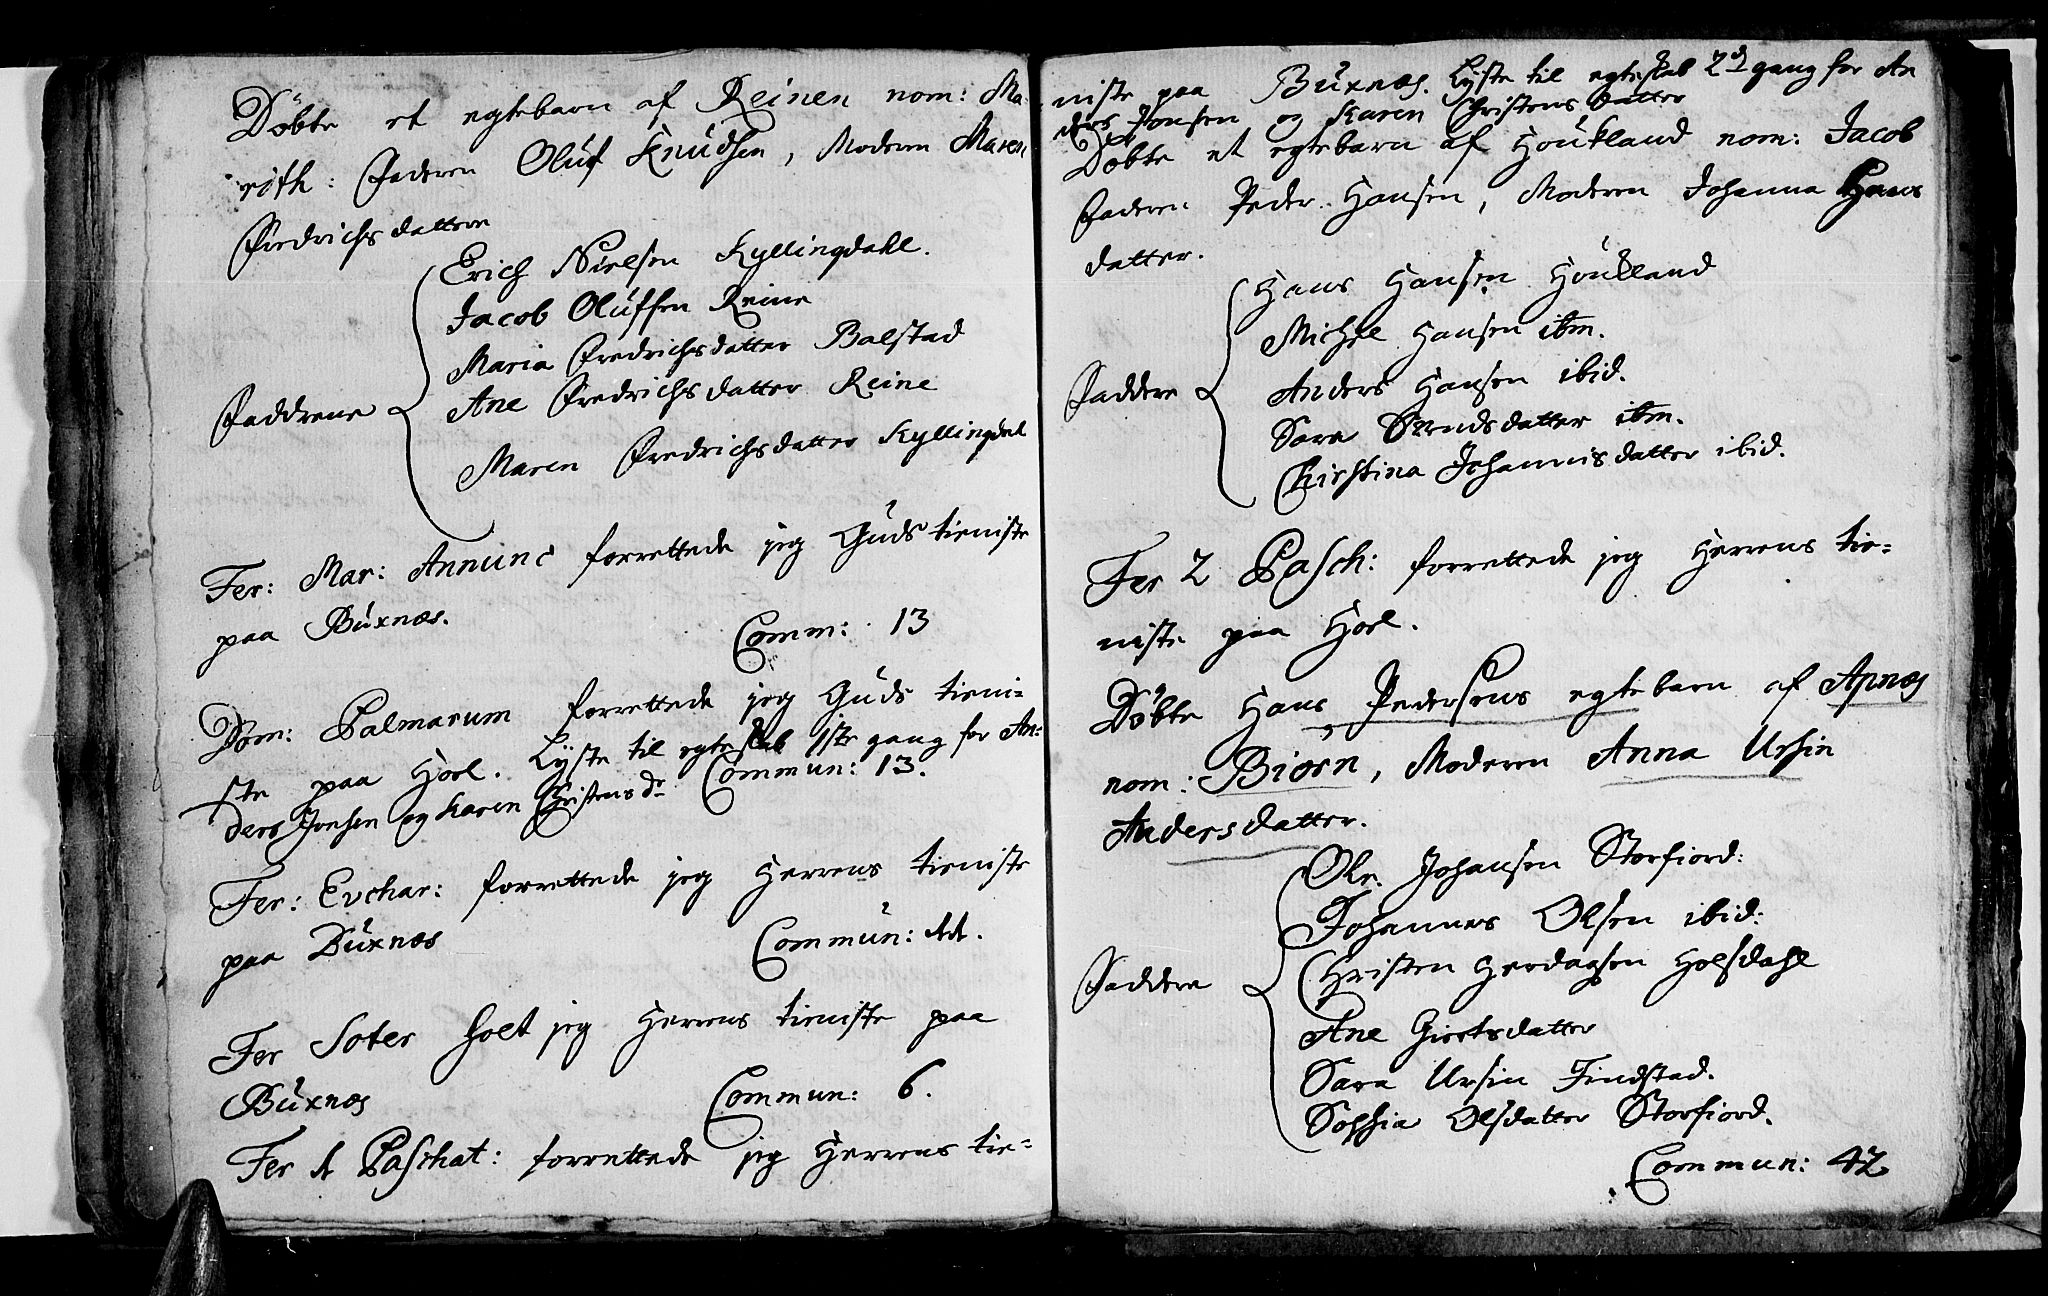 Döbte et egtebarn af Reinen nom: Ma-
rith: Faderen Oluf Knudsen, Moderen Maren
Fredrichsdatter
Erich Nielsen Kyllingdahl.
Jacob Oluffsen Reine
Maria Fredrichsdatter Balstad
Faddrene Ane Fredrichsdatter Reine
Maren Fredrichsdatter Kyllingdal
Fer: Mar: Annunc forrettede jeg Guds tieniste
paa Buxnæs. Comm: 13
Dom: Palmarum forrettede jeg Guds tieni=
ste paa Hoel. Lyste til egteskab 1ste gang for An-
ders Jonsen og Karen Christensdr Commun: 13.
Fer: Evchar: forrettede jeg Herrens tieniste
paa Buxnæs Commun: 11.
Fer Soter holt jeg Herrens tieniste paa
Buxnæs Commun: 6.
Fer 1 Paschat: forrettede jeg Herrens tie=
niste paa Buxnæs. Lyste til egteskab 2d gang for An
ders Jonsen og Karen Christensdatter
Döbte et egtebarn af Houkland nom: Jacob
Faderen Peder Hansen, Moderen Johanna Hans
datter.
Hans Hansen Houkland
Michel Hansen itm.
Faddere Anders Hansen ibid.
Sara datter itm.
Chirstina Johannisdatter ibid.
Fer 2 Pasch: forrettede jeg Herrens tie=
niste paa Hoel.
Döbte Hans Pedersens egtebarn af Apnæs
nom: Biorn, Moderen Anna Ursin
Andersdatter.
Ole Johansen Storfiord:
Johannes Olsen ibid:
Faddere Christen Herdagsen Holsdahl
Ane Giertsdatter
Sara Ursin Findstad.
Sophia Olsdatter Storfiord.
Commun: 42